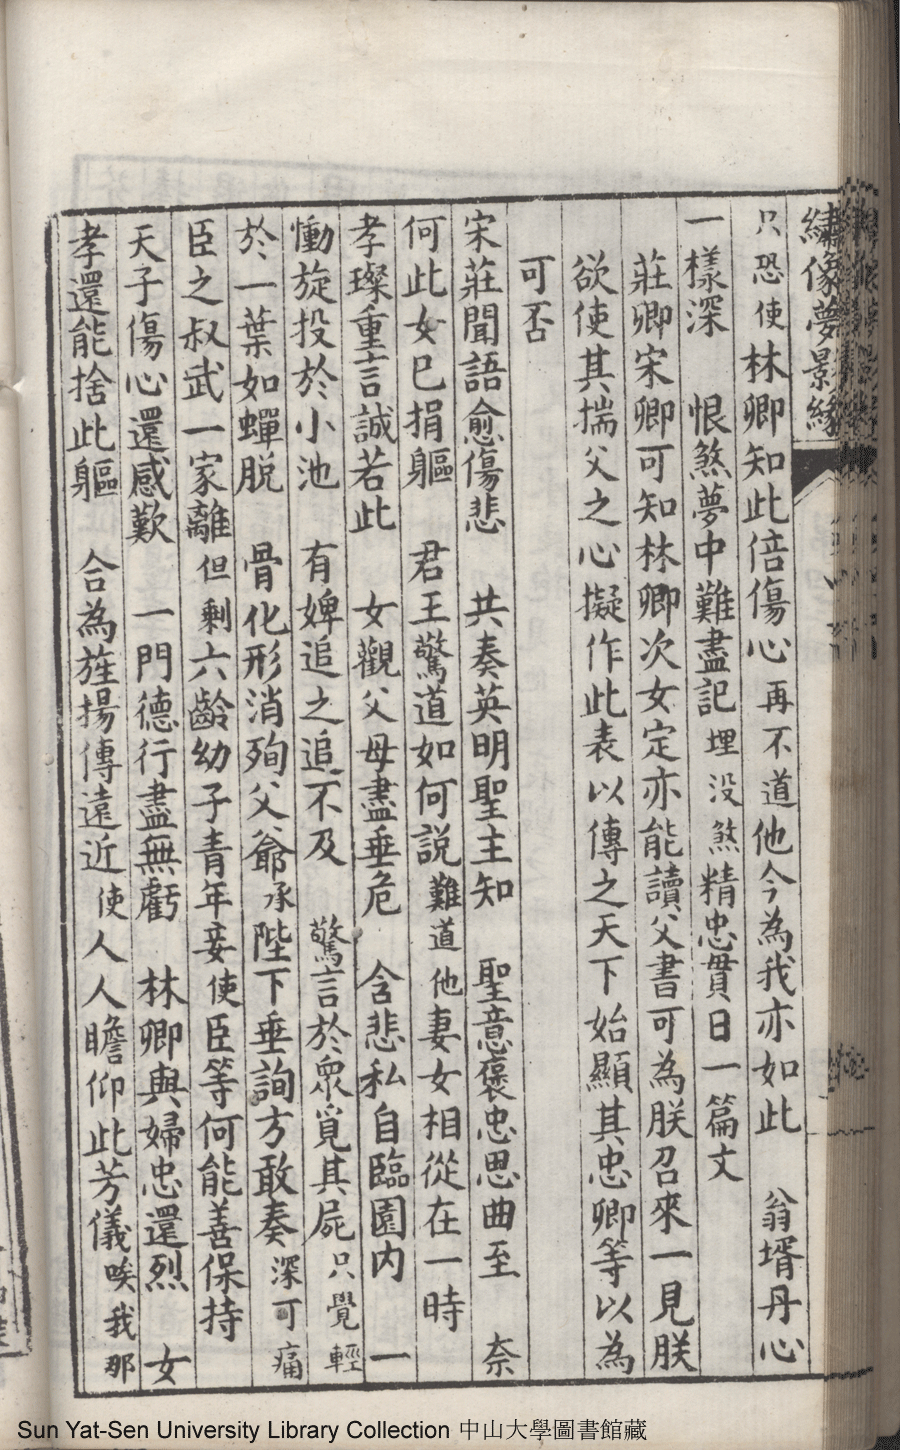 繡像夢景緣
只恐使林卿知此倍傷心再不道他今為我亦如此　翁壻丹心
一樣深　恨煞夢中難盡記埋没煞精忠貫日一篇文
莊卿宋卿可知林卿次女定亦能讀父書可為朕召來一見朕
欲使其揣父之心擬作此表以傳之天下始顯其忠卿等以為
可否
宋莊聞語愈傷悲　共奏英明聖主知　聖意褒忠思曲至　奈
何此女已捐軀　君王驚道如何説難道他妻女相從在一時
孝璨重言誠若此　女觀父母盡垂危　含悲私自臨園内　一
慟旋投於小池　有婢追之追不及　驚言於眾覓其屍只覺輕
於一葉如蟬脱　骨化形消殉父爺承陛下垂詢方敢奏深可痛
臣之叔武一家離但剩六齡幼子青年妾使臣等何能善保持
天子傷心還感歎　一門德行盡無虧　林卿與婦忠還烈　女
孝還能捨此軀　合為旌揚傳遠近使人人瞻仰此芳儀唉我那
Sun Yat-Sen University Library Collection 中山大學圖書館藏